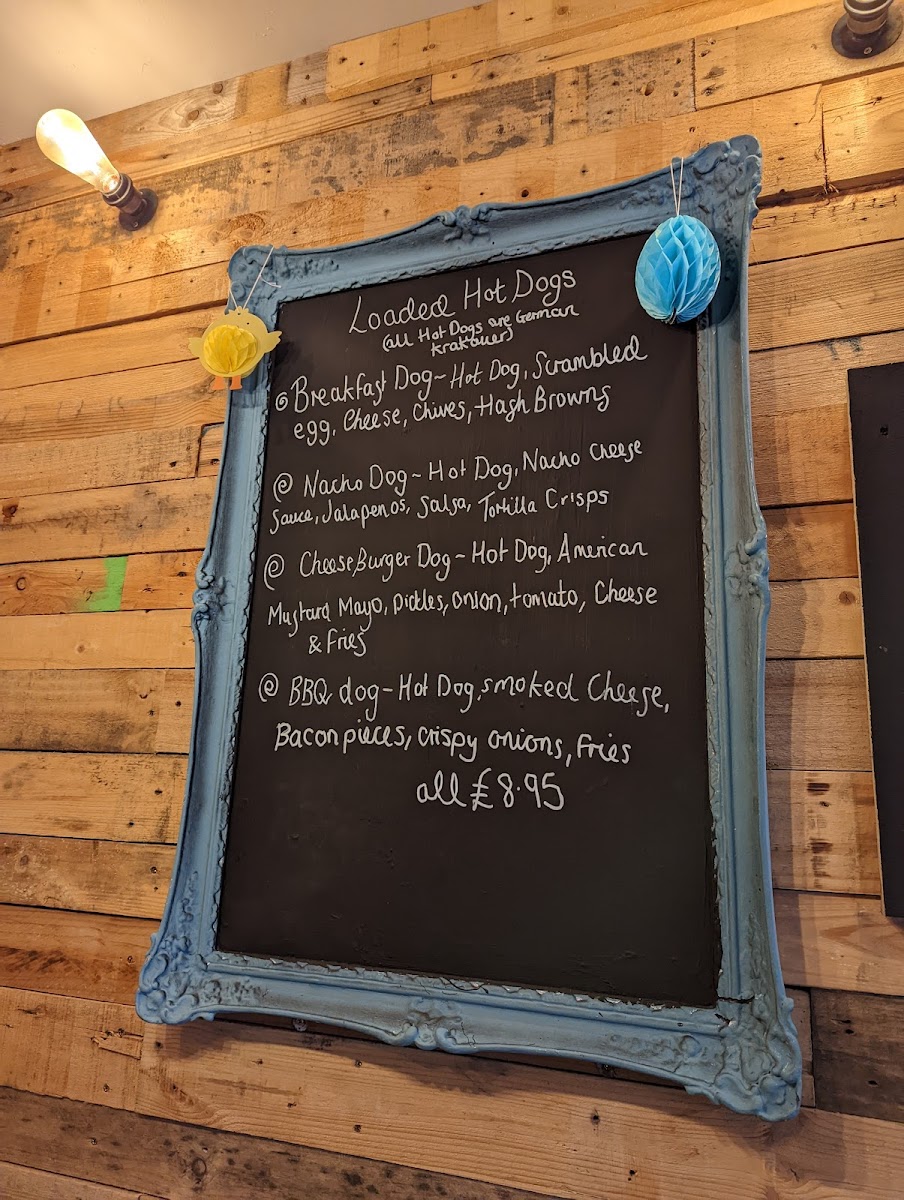 Loaded Hot Dogs
(all Hot Dogs are German
Krakauer)
@ Breakfast Dog~Hot Dog, Scrambled
egg, Cheese, Chives, Hash Browns
@ Nacho Dog~Hot Dog, Nacho Cheese
Sauce, Jalapenos, Salsa, Tortilla Crisps
@ CheeseBurger Dog~Hot Dog, American
Mustard, Mayo, pickles, onion, tomato, Cheese
& Fries
@ BBQ dog-Hot Dog, smoked Cheese,
Bacon pieces, crispy onions, Fries
all £8.95